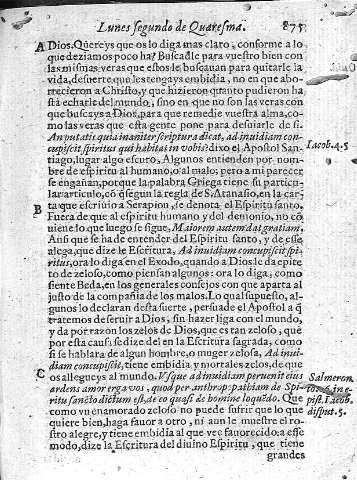 Lunes segundo de Quaresma. 875
A Dios. Quereys que os lo diga mas claro, conforme a lo
que deziamos poco ha? Buscadle para vuestro bien con
las mismas veras que estos le buscauan para quitarle la
vida, de suerte que les tengays embidia, no en que abor-
recieron a Christo, y que hizieron quanto pudieron ha
sta echarle del mundo, sino en que no son las veras con
que buscays a Dios, para que remedie vuestra alma, co-
mo las veras que esta gente pone para desuiarle de si.
An putatis quia inaniter scriptura dicat, ad inuidiam con-
cupiscit spiritus qui habitat in vobis? dixo el Apostol San-
Iacob. 4. 5
tiago, lugar algo escuro, Algunos entienden por nom-
bre de espiritu al humano, o al malo; pero a mi parecer
se engañan, porque la palabra Griega tiene su particu-
lar articulo, cō q̃ segun la regla de S. Atanasio, en la car-
ta que escriuio a Serapion, se denota el Espiritu santo.
B Fuera de que al espiritu humano y del demonio, no cō
uiene lo que luego se sigue, Maiorem autem dat gratiam.
Ansi que se ha de entender del Espiritu santo, y de esse
alega, que dize le Escritura, Ad inuidiam concupiscit spi-
ritus, ora lo diga en el Exodo, quando a Dios le da epite
to de zeloso, como piensan algunos: ora lo diga, como
siente Beda, en los generales consejos con que aparta al
justo de la compañia de los malos. Lo qual supuesto, al-
gunos lo declaran desta suerte, persuade el Apostol a q̃
tratemos de seruir a Dios, sin hazer liga con el mundo,
y da por razon los zelos de Dios, que es tan zeloso, que
por esta causa se dize del en la Escritura sagrada, como
si se hablara de algun hombre, o muger zelosa, Ad inui-
diam concupiscit, tiene embidia y mortales zelos, de que
C os allegueys al mundo. Vsque ad inuidiam peruenit eius
ardens amor erga vos, quod per anthropopathiam de Spi-
ritu sancto dictum est, de eo quasi de homine loquēdo. Que
Salmeron.
como vn enamorado zeloso no puede sufrir que lo que
quiere bien, haga fauor a otro, ni aun le muestre el ro-
disput. 5.
stro alegre, y tiene embidia al que vee fauorecido: a esse
modo, dize la Escritura del diuino Espiritu, que tiene
grandes